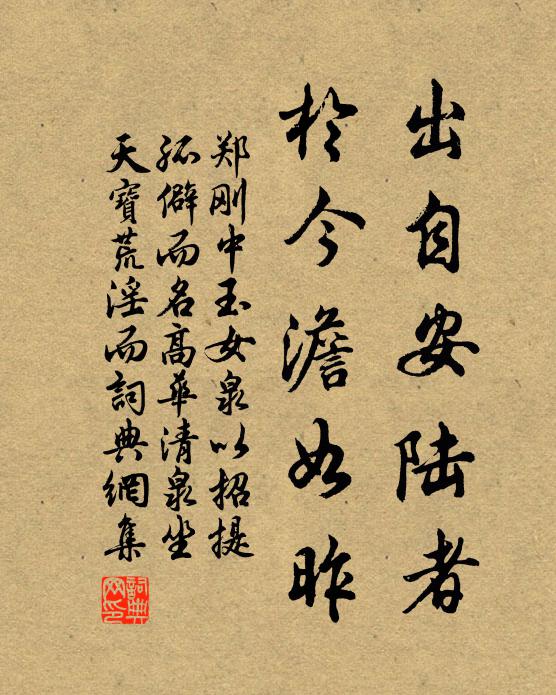 出自安陆者
於今澹如昨
郑刚中玉女泉以招提
孤僻而名高华清泉坐
天寶荒淫而詞典網集
詞典网印